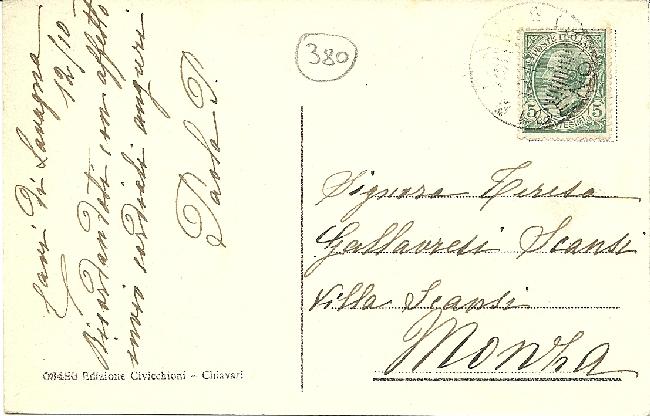 Cavi di Lavagna
12/10
Ricordandoti con affetto
invio cordiali auguri
Paola P.
380
5 5
Signora Teresa
Gallavresi Scansi
Villa Scansi
Monza
Edizione Civicchioni - Chiavari